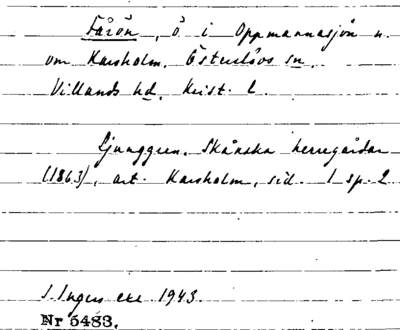 Fårön, ö i Oppmannasjön n.
om Karsholm. Österslövs sn.
Villands hd. Krist. L.
Ljunggren. Skånska herregårdar
(1863), art. Karsholm, sid. 1 sp. 2
I. Ingers exc. 1943.
Nr 5483.